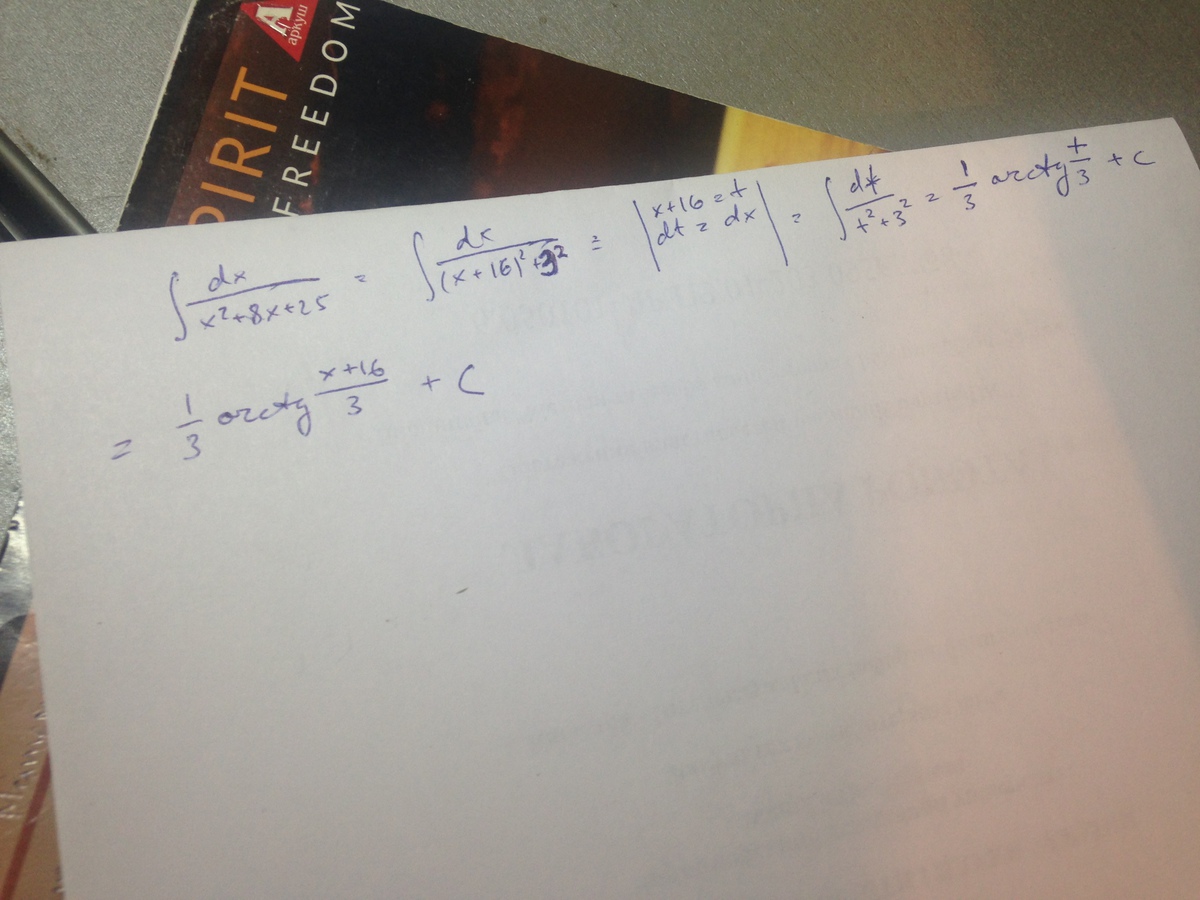 А
аркуш
PIRIT
FREEDOM
∫ dx/(x²+8x+25) = ∫ dx/((x+16)²+3²) = |x+16=t dt=dx| = ∫ dt/(t²+3²) = 1/3 arctg t/3 + C
= 1/3 arctg (x+16)/3 + C